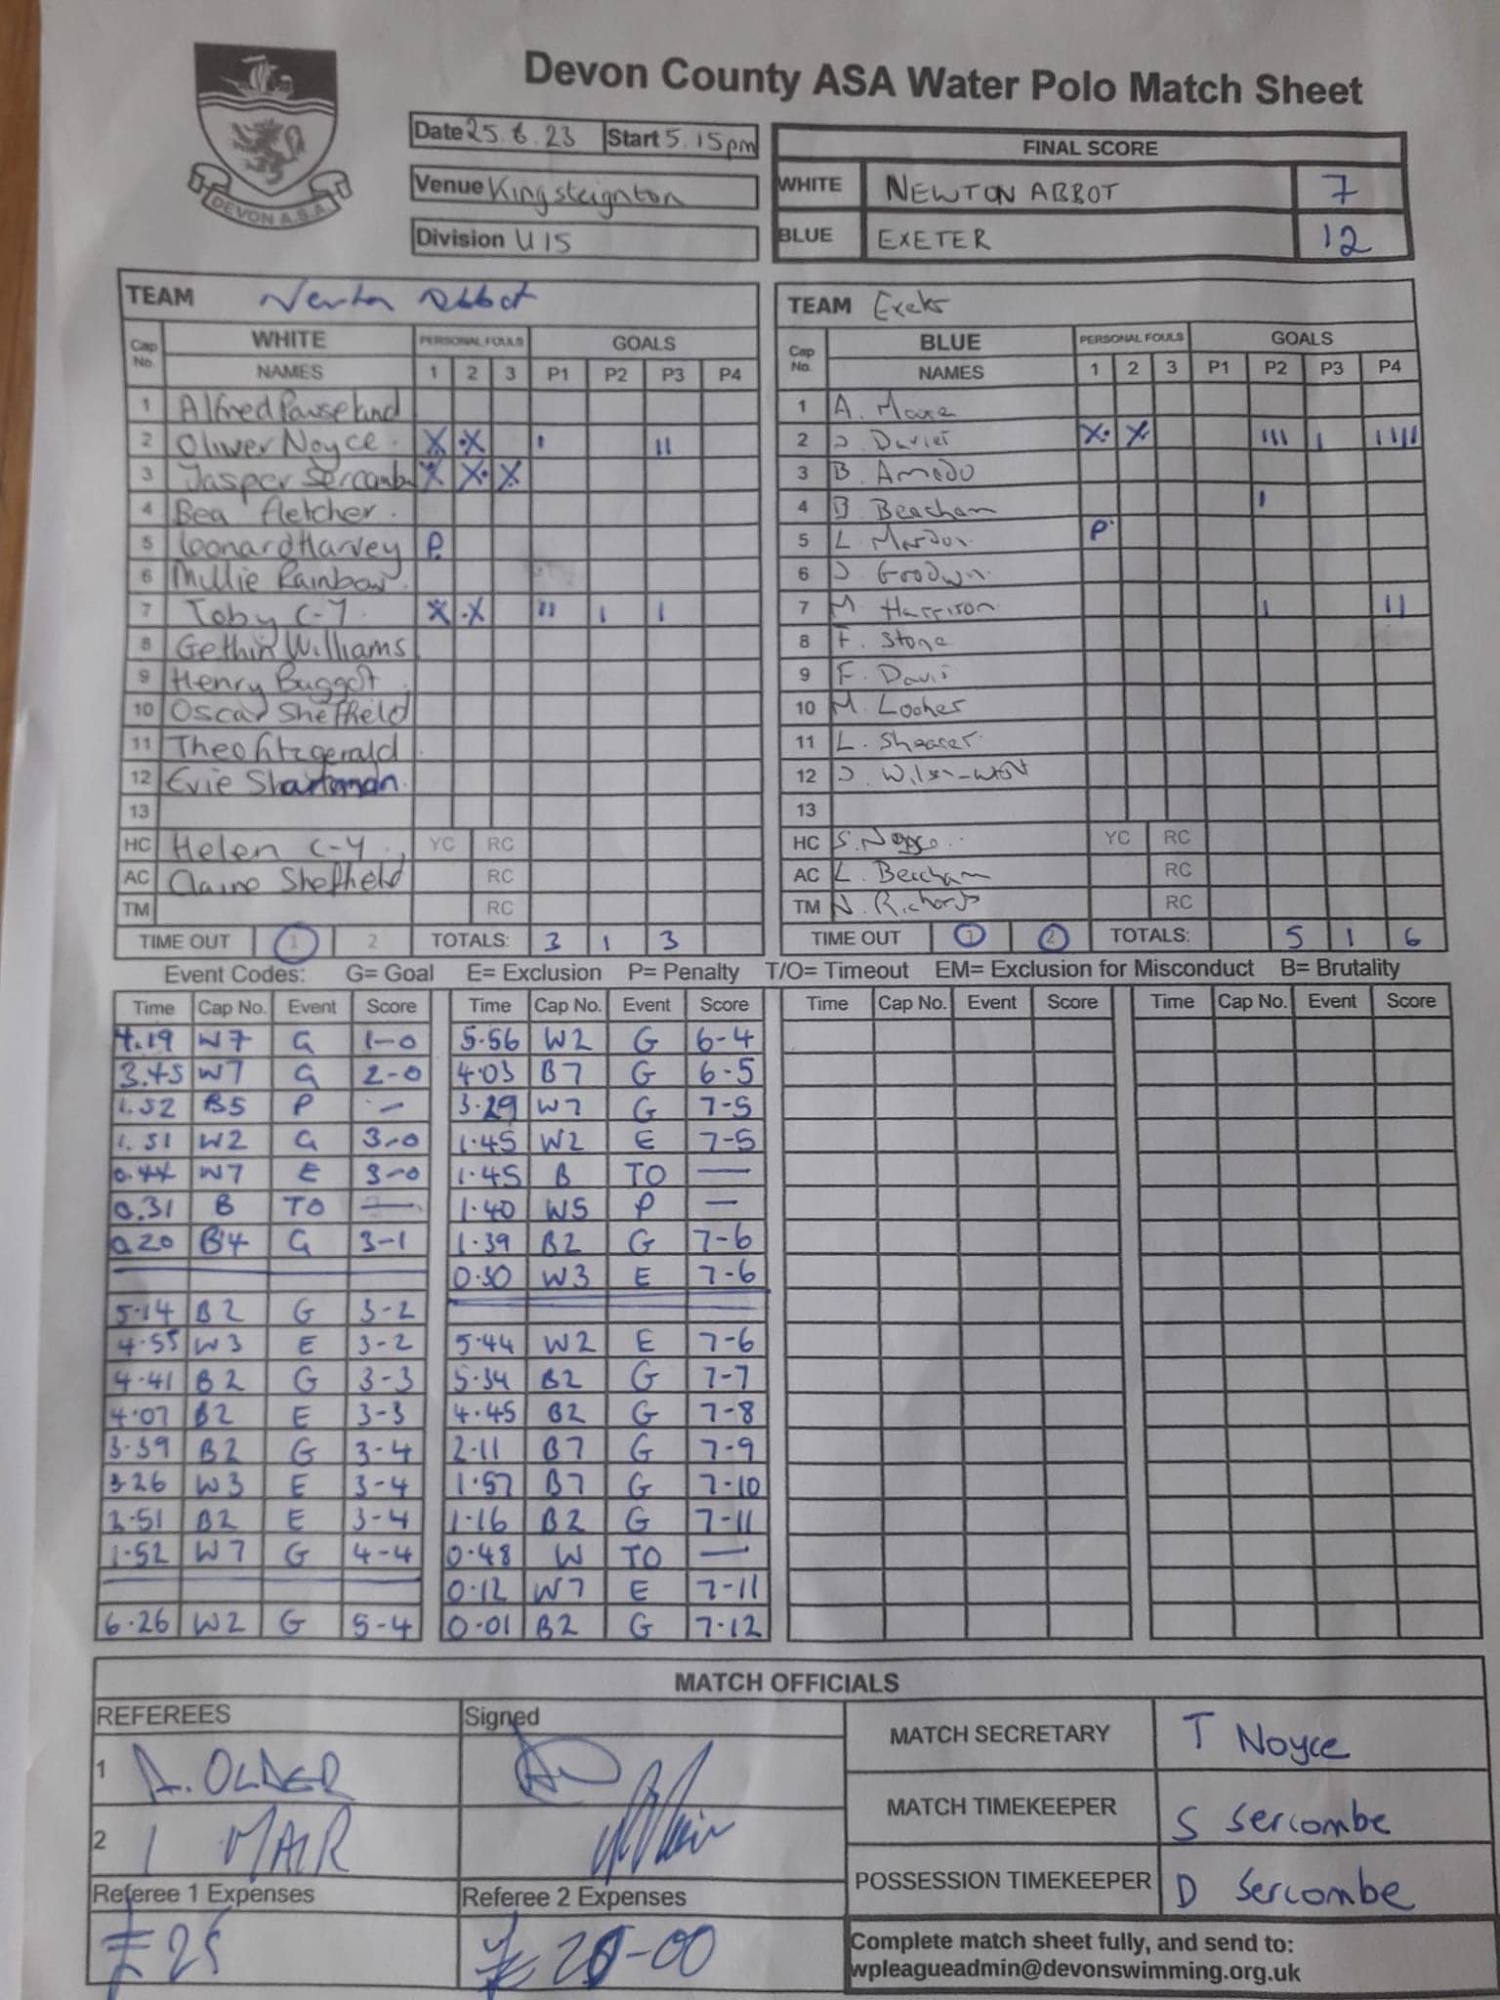 Devon County ASA Water Polo Match Sheet
DEVON A.S.A.
Date 25.6.23 Start 5.15pm
Venue Kingsteignton
Division U15
FINAL SCORE
WHITE NEWTON ABBOT 7
BLUE EXETER 12
TEAM Newton Abbot
Cap No. WHITE PERSONAL FOULS GOALS
NAMES 1 2 3 P1 P2 P3 P4
1 Alfred
2 Oliver Noyce. X X I II
3 Jasper Sercombe X X X
4 Bea Fletcher.
5 Leonard Harvey P.
6 Millie Rainbow.
7 Toby C-Y. X X II I I
8 Gethin Williams
9 Henry Buggot
10 Oscar Sheffield
11 Theo Fitzgerald
12 Evie
13
HC Helen C-Y. YC RC
AC Claire Sheffield RC
TM RC
TIME OUT 1 2 TOTALS: 3 1 3
TEAM Exeter
Cap No. BLUE PERSONAL FOULS GOALS
NAMES 1 2 3 P1 P2 P3 P4
1 A.
2 J. Davies X X III I IIII
3 B. Amedo
4 B Beacham I
5 L. P
6 J. Goodwin.
7 M. Harrison I II
8 F. Stone
9 F. Davis
10 M. Looker
11 L. Shearer
12 J.
13
HC S. YC RC
AC L. Beacham RC
TM N. Richards RC
TIME OUT 1 2 TOTALS: 5 1 6
Event Codes: G= Goal E= Exclusion P= Penalty T/O= Timeout EM= Exclusion for Misconduct B= Brutality
Time Cap No. Event Score
4.19 W7 G 1-0
3.45 W7 G 2-0
1.52 B5 P -
1.51 W2 G 3-0
0.44 W7 E 3-0
0.31 B TO —
0.20 B4 G 3-1
5.14 B2 G 3-2
4.55 W3 E 3-2
4.41 B2 G 3-3
4.07 B2 E 3-3
3.39 B2 G 3-4
3.26 W3 E 3-4
2.51 B2 E 3-4
1.52 W7 G 4-4
6.26 W2 G 5-4
Time Cap No. Event Score
5.56 W2 G 6-4
4.03 B7 G 6-5
3.29 W7 G 7-5
1.45 W2 E 7-5
1.45 B TO —
1.40 W5 P —
1.39 B2 G 7-6
0.30 W3 E 7-6
5.44 W2 E 7-6
5.34 B2 G 7-7
4.45 B2 G 7-8
2.11 B7 G 7-9
1.57 B7 G 7-10
1.16 B2 G 7-11
0.48 W TO —
0.12 W7 E 7-11
0.01 B2 G 7-12
Time Cap No. Event Score
Time Cap No. Event Score
MATCH OFFICIALS
REFEREES Signed
1 A. OLDER
2 I MAIR
Referee 1 Expenses Referee 2 Expenses
£25
MATCH SECRETARY T Noyce
MATCH TIMEKEEPER S Sercombe
POSSESSION TIMEKEEPER D Sercombe
Complete match sheet fully, and send to:
wpleagueadmin@devonswimming.org.uk